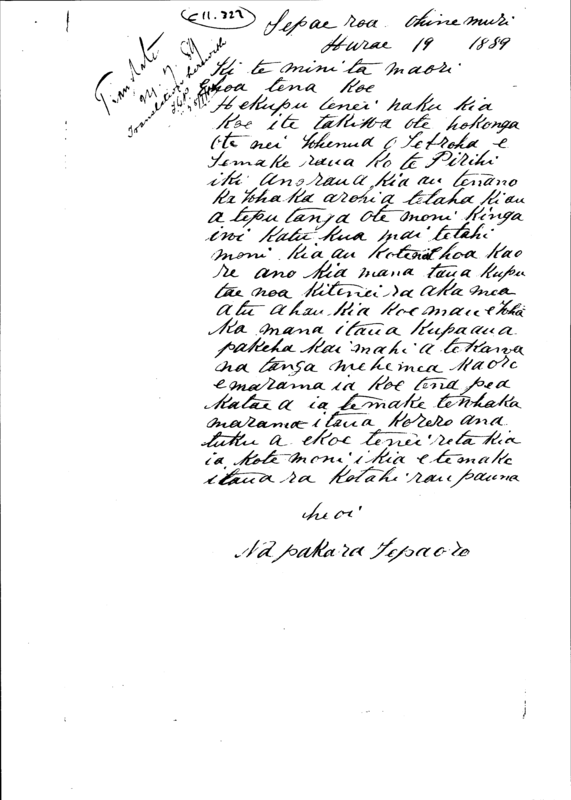 E 11.327
Te pae roa. Ohinemuri
Hurae 19 1889
Translate
Translation herewith
Ki te minita maori
E hoa tena koe
He kupu tenei naku kia
koe i te takiwa ote hokonga
ote nei Whenua o Te Aroha e
Te make raua ko te Pirihi
iki ano raua kia au tenano
ka Whaka arohia tetaha kiau
a tepu tanga ote moni kinga
iwi katu kua mai tetahi
moni kia au kotenei hoa kao
re ano kia mana taua kupu
tae noa kitenei ra aka mea
atu ahau kia koe mau e Wha
ka mana itaua kupaaua
pakeha kai mahi a te kawa
na tanga mehemea kaore
e marama ia koe tena pea
katae a ia te make te Whaka
marama itaua korero ana
tuku a ekoe tenei reta kia
ia kote moni i kia e te make
i taua ra kotahi rau pauna
heoi
Na pakara Te paoro